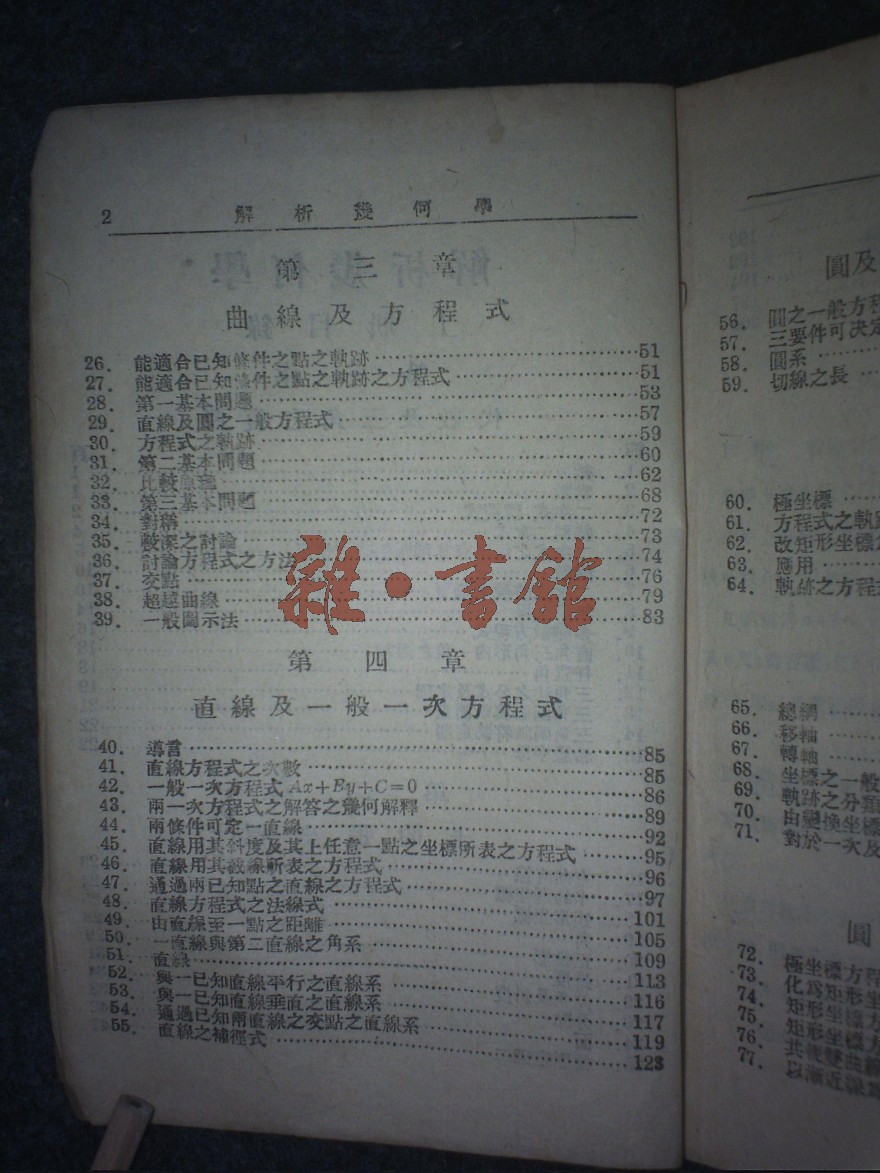 2 解析幾何學
第三章
曲線及方程式
26. 能適合已知條件之點之軌跡 51
27. 能適合已知條件之點之軌跡之方程式 51
28. 第一基本問題 53
29. 直線及圓之一般方程式 57
30. 方程式之軌跡 59
31. 第二基本問題 60
32. 比較原理 62
33. 第三基本問題 68
34. 對稱 72
35. 較深之討論 73
36. 討論方程式之方法 74
37. 交點 76
38. 超越曲線 79
39. 一般圖示法 83
雜·書館
第四章
直線及一般一次方程式
40. 導言 85
41. 直線方程式之次數 85
42. 一般一次方程式 Ax+By+C=0 86
43. 兩一次方程式之解答之幾何解釋 89
44. 兩條件可定一直線 92
45. 直線用其斜度及其上任意一點之坐標所表之方程式 95
46. 直線用其截線所表之方程式 96
47. 通過兩已知點之直線之方程式 97
48. 直線方程式之法線式 101
49. 由直線至一點之距離 105
50. 一直線與第二直線之角系 109
51. 直線 113
52. 與一已知直線平行之直線系 116
53. 與一已知直線垂直之直線系 117
54. 通過已知兩直線之交點之直線系 119
55. 直線之補徑式 123
圓及
56. 圓之一般方程
57. 三要件可決定
58. 圓系
59. 切線之長
60. 極坐標
61. 方程式之軌跡
62. 改矩形坐標
63. 應用
64. 軌跡之方程式
65. 總綱
66. 移軸
67. 轉軸
68. 坐標之一般
69. 軌跡之分類
70. 由變換坐標
71. 對於一次及
圓
72. 極坐標方程
73. 化為矩形坐
74. 矩形坐標方
75. 矩形坐標方
76. 共軛雙曲線
77. 以漸近線